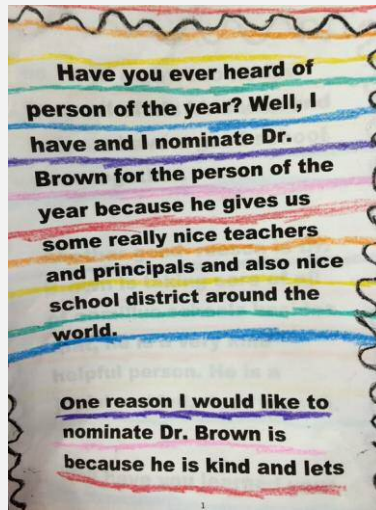 Have you ever heard of
person of the year? Well, I
have and I nominate Dr.
Brown for the person of the
year because he gives us
some really nice teachers
and principals and also nice
school district around the
world.
One reason I would like to
nominate Dr. Brown is
because he is kind and lets
1